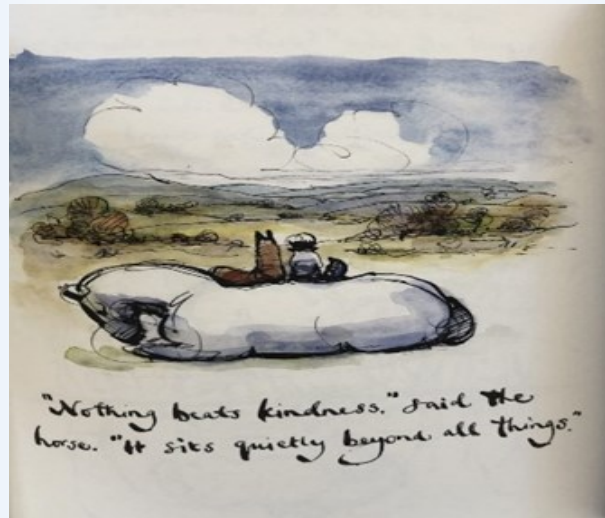 "Nothing beats kindness." said the
horse. "It sits quietly beyond all things."